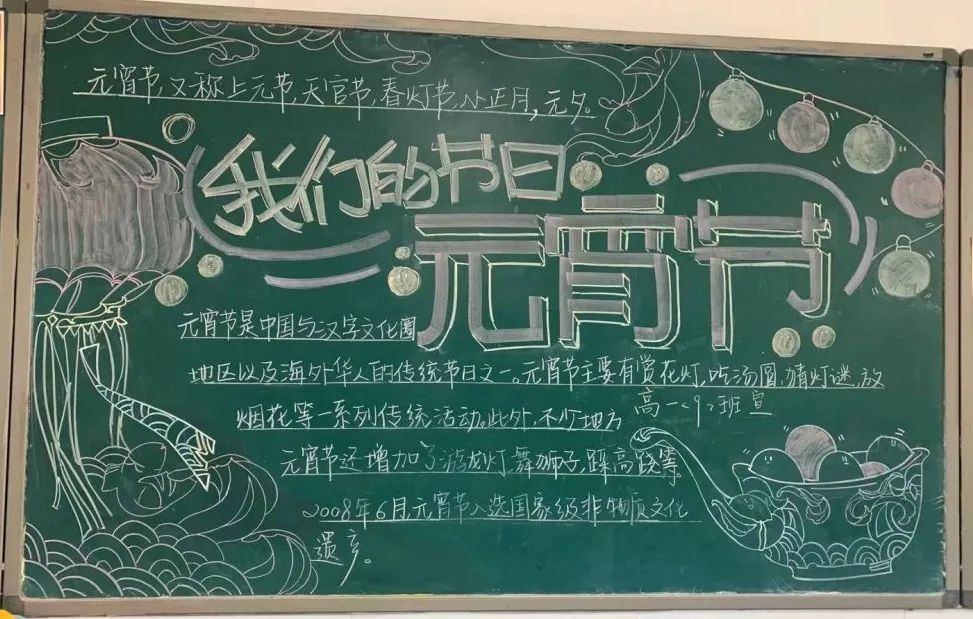 元宵节,又称上元节,天官节,春灯节,小正月,元夕。
我们的节日
元宵节
元宵节是中国与汉字文化圈
地区以及海外华人的传统节日之一。元宵节主要有赏花灯,吃汤圆,猜灯谜,放
烟花等一系列传统活动。此外,不少地方
高一<9>班宣
元宵节还增加了游龙灯,舞狮子,踩高跷等
2008年6月,元宵节入选国家级非物质文化
遗产。